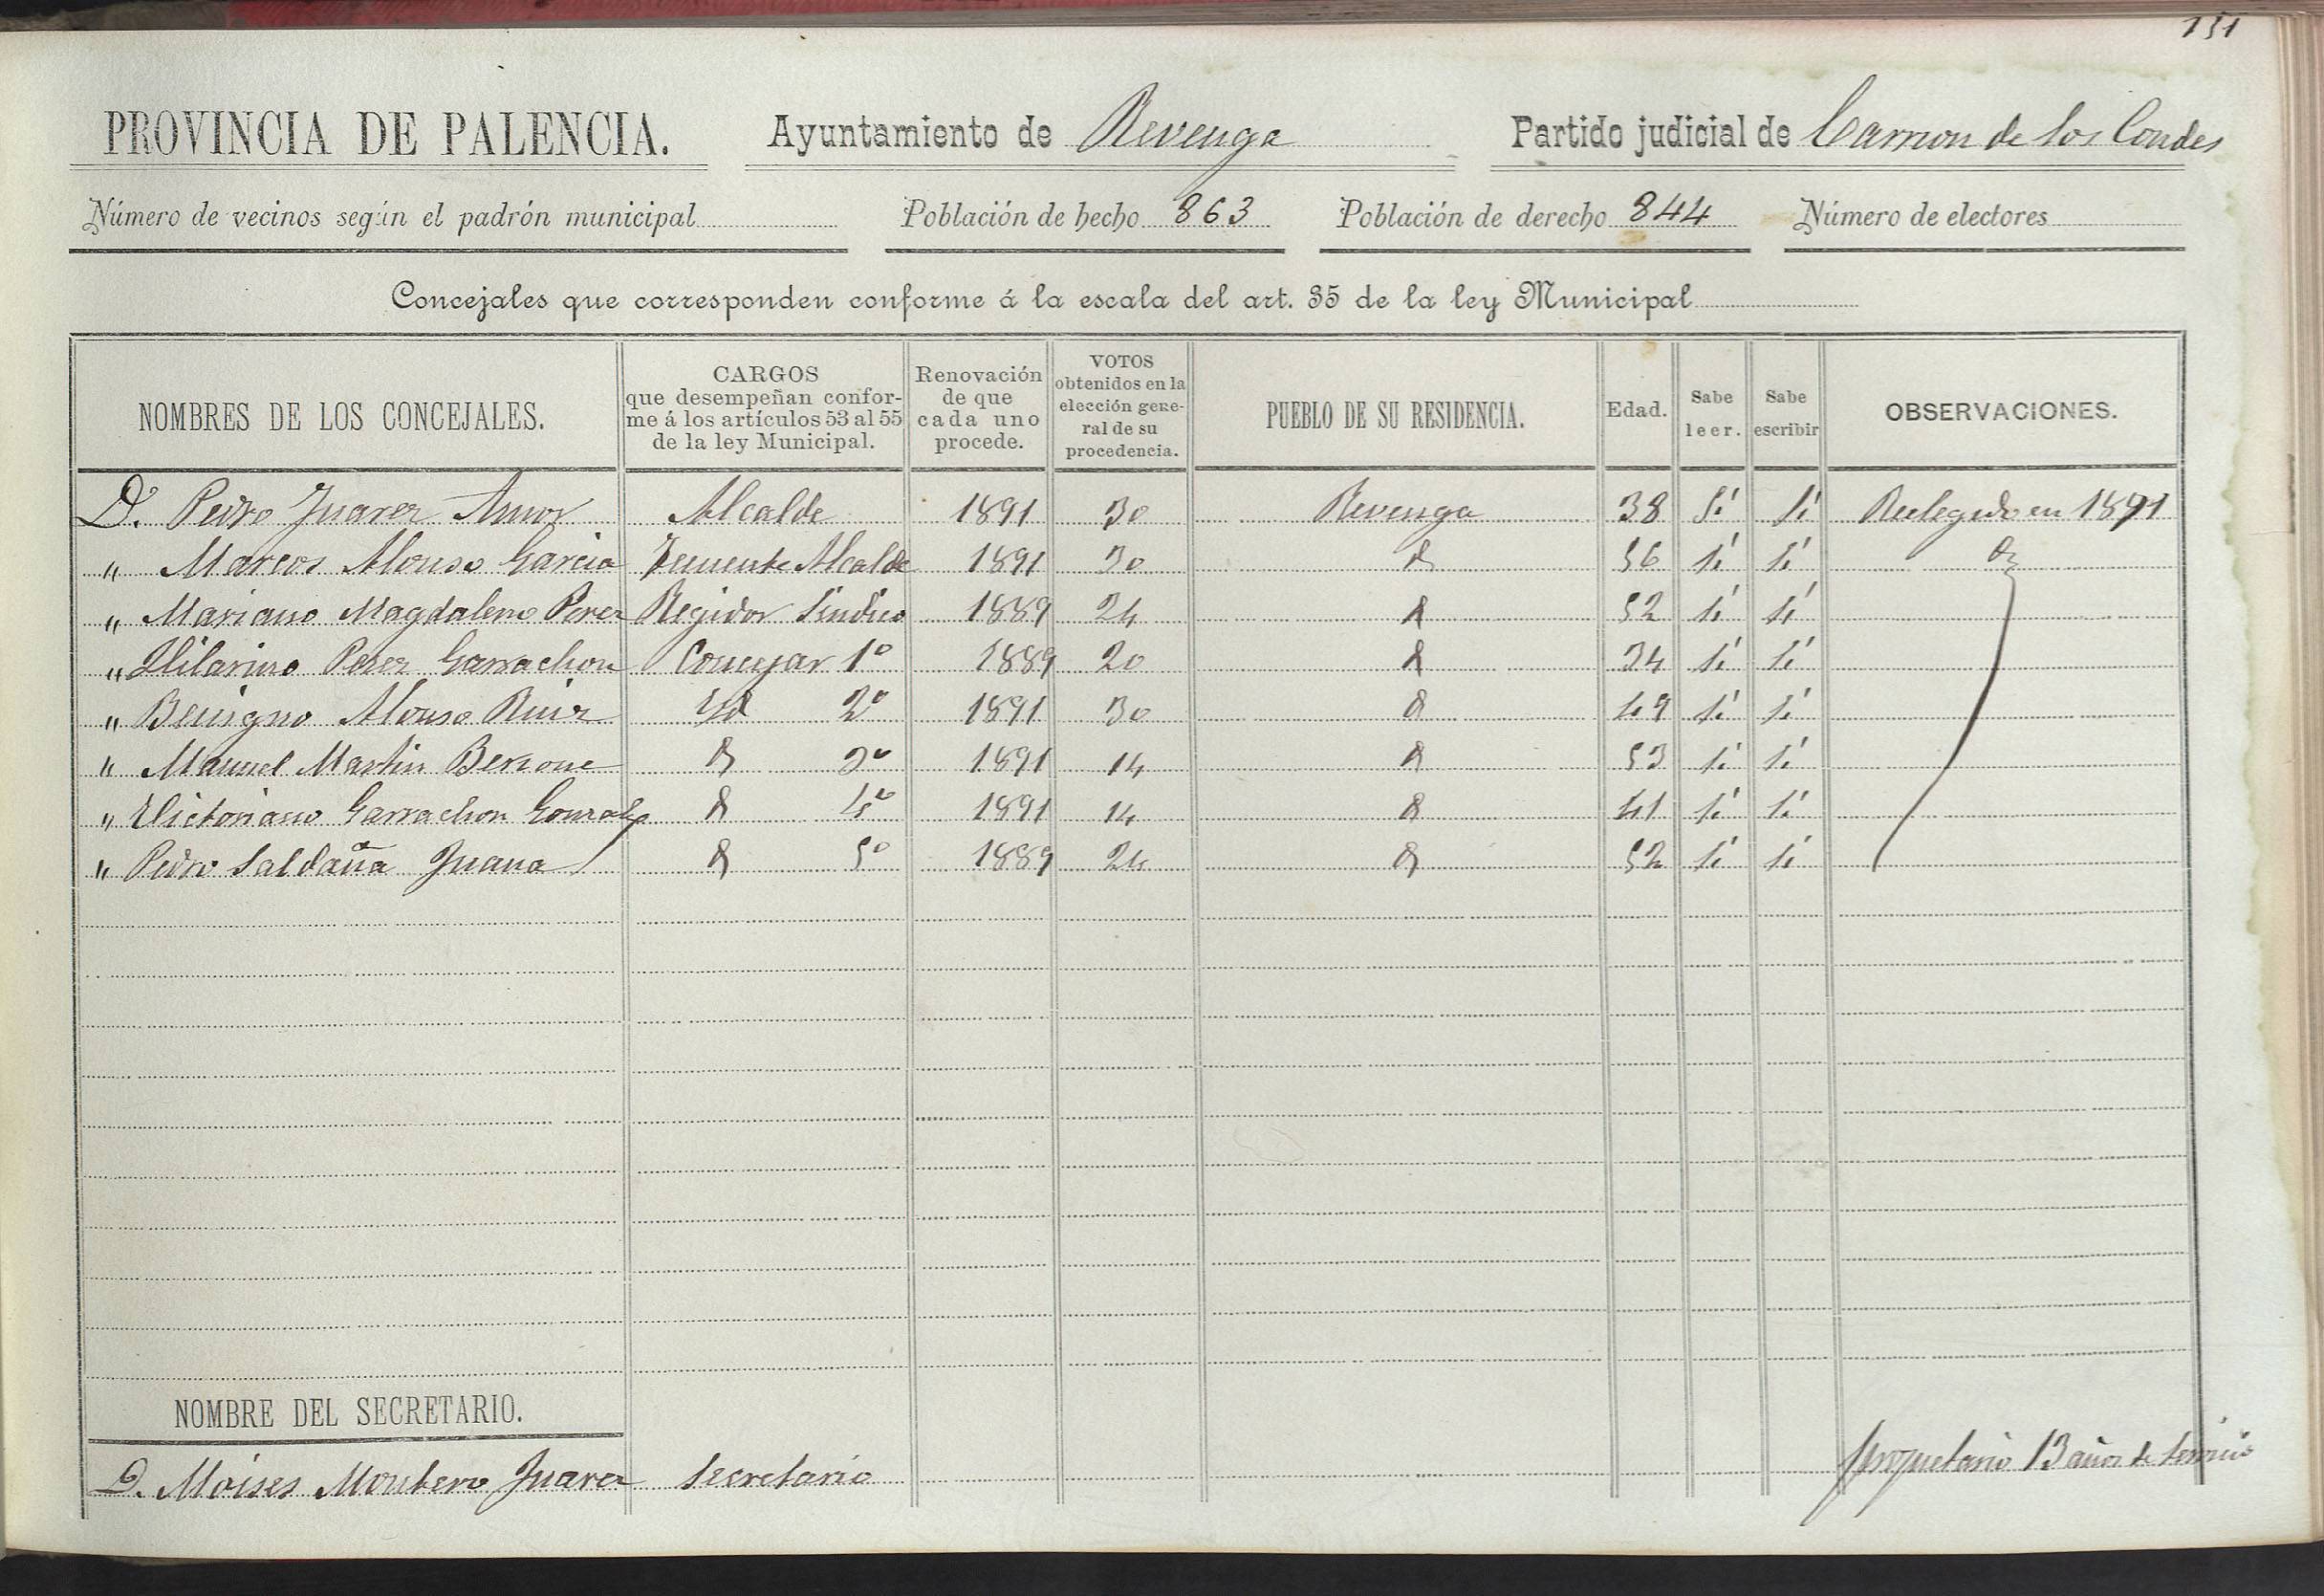 151
PROVINCIA DE PALENCIA. Ayuntamiento de Revenga Partido judicial de Carrion de los Condes
Número de vecinos según el padrón municipal Población de hecho 863 Población de derecho 844 Número de electores
Concejales que corresponden conforme á la escala del art. 35 de la ley Municipal
NOMBRES DE LOS CONCEJALES. CARGOS que desempeñan confor-me á los artículos 53 al 55 de la ley Municipal. Renovación de que cada uno procede. VOTOS obtenidos en la elección gene-ral de su procedencia. PUEBLO DE SU RESIDENCIA. Edad. Sabe leer. Sabe escribir OBSERVACIONES.
D. Pedro Juarez Amor Alcalde 1891 30 Revenga 38 Sí Sí Relegido en 1891
" Marcos Alonso Garcia Teniente Alcalde 1891 30 56 sí sí
" Mariano Magdaleno Perez Regidor Sindico 1889 24 52 sí sí
" Hilarino Perez Garrachon Concejar 1º 1889 20 34 sí sí
" Benigno Alonso Ruiz Id 2º 1891 30 49 sí sí
" Manuel Martin 3º 1891 14 53 sí sí
" Victoriano Garrachon Gonzalez 4º 1891 14 41 sí sí
" Pedro Saldaña Juana 5º 1889 24 52 sí sí
NOMBRE DEL SECRETARIO.
D. Moises Montero Juarez Secretario propietario 13 años de servicio